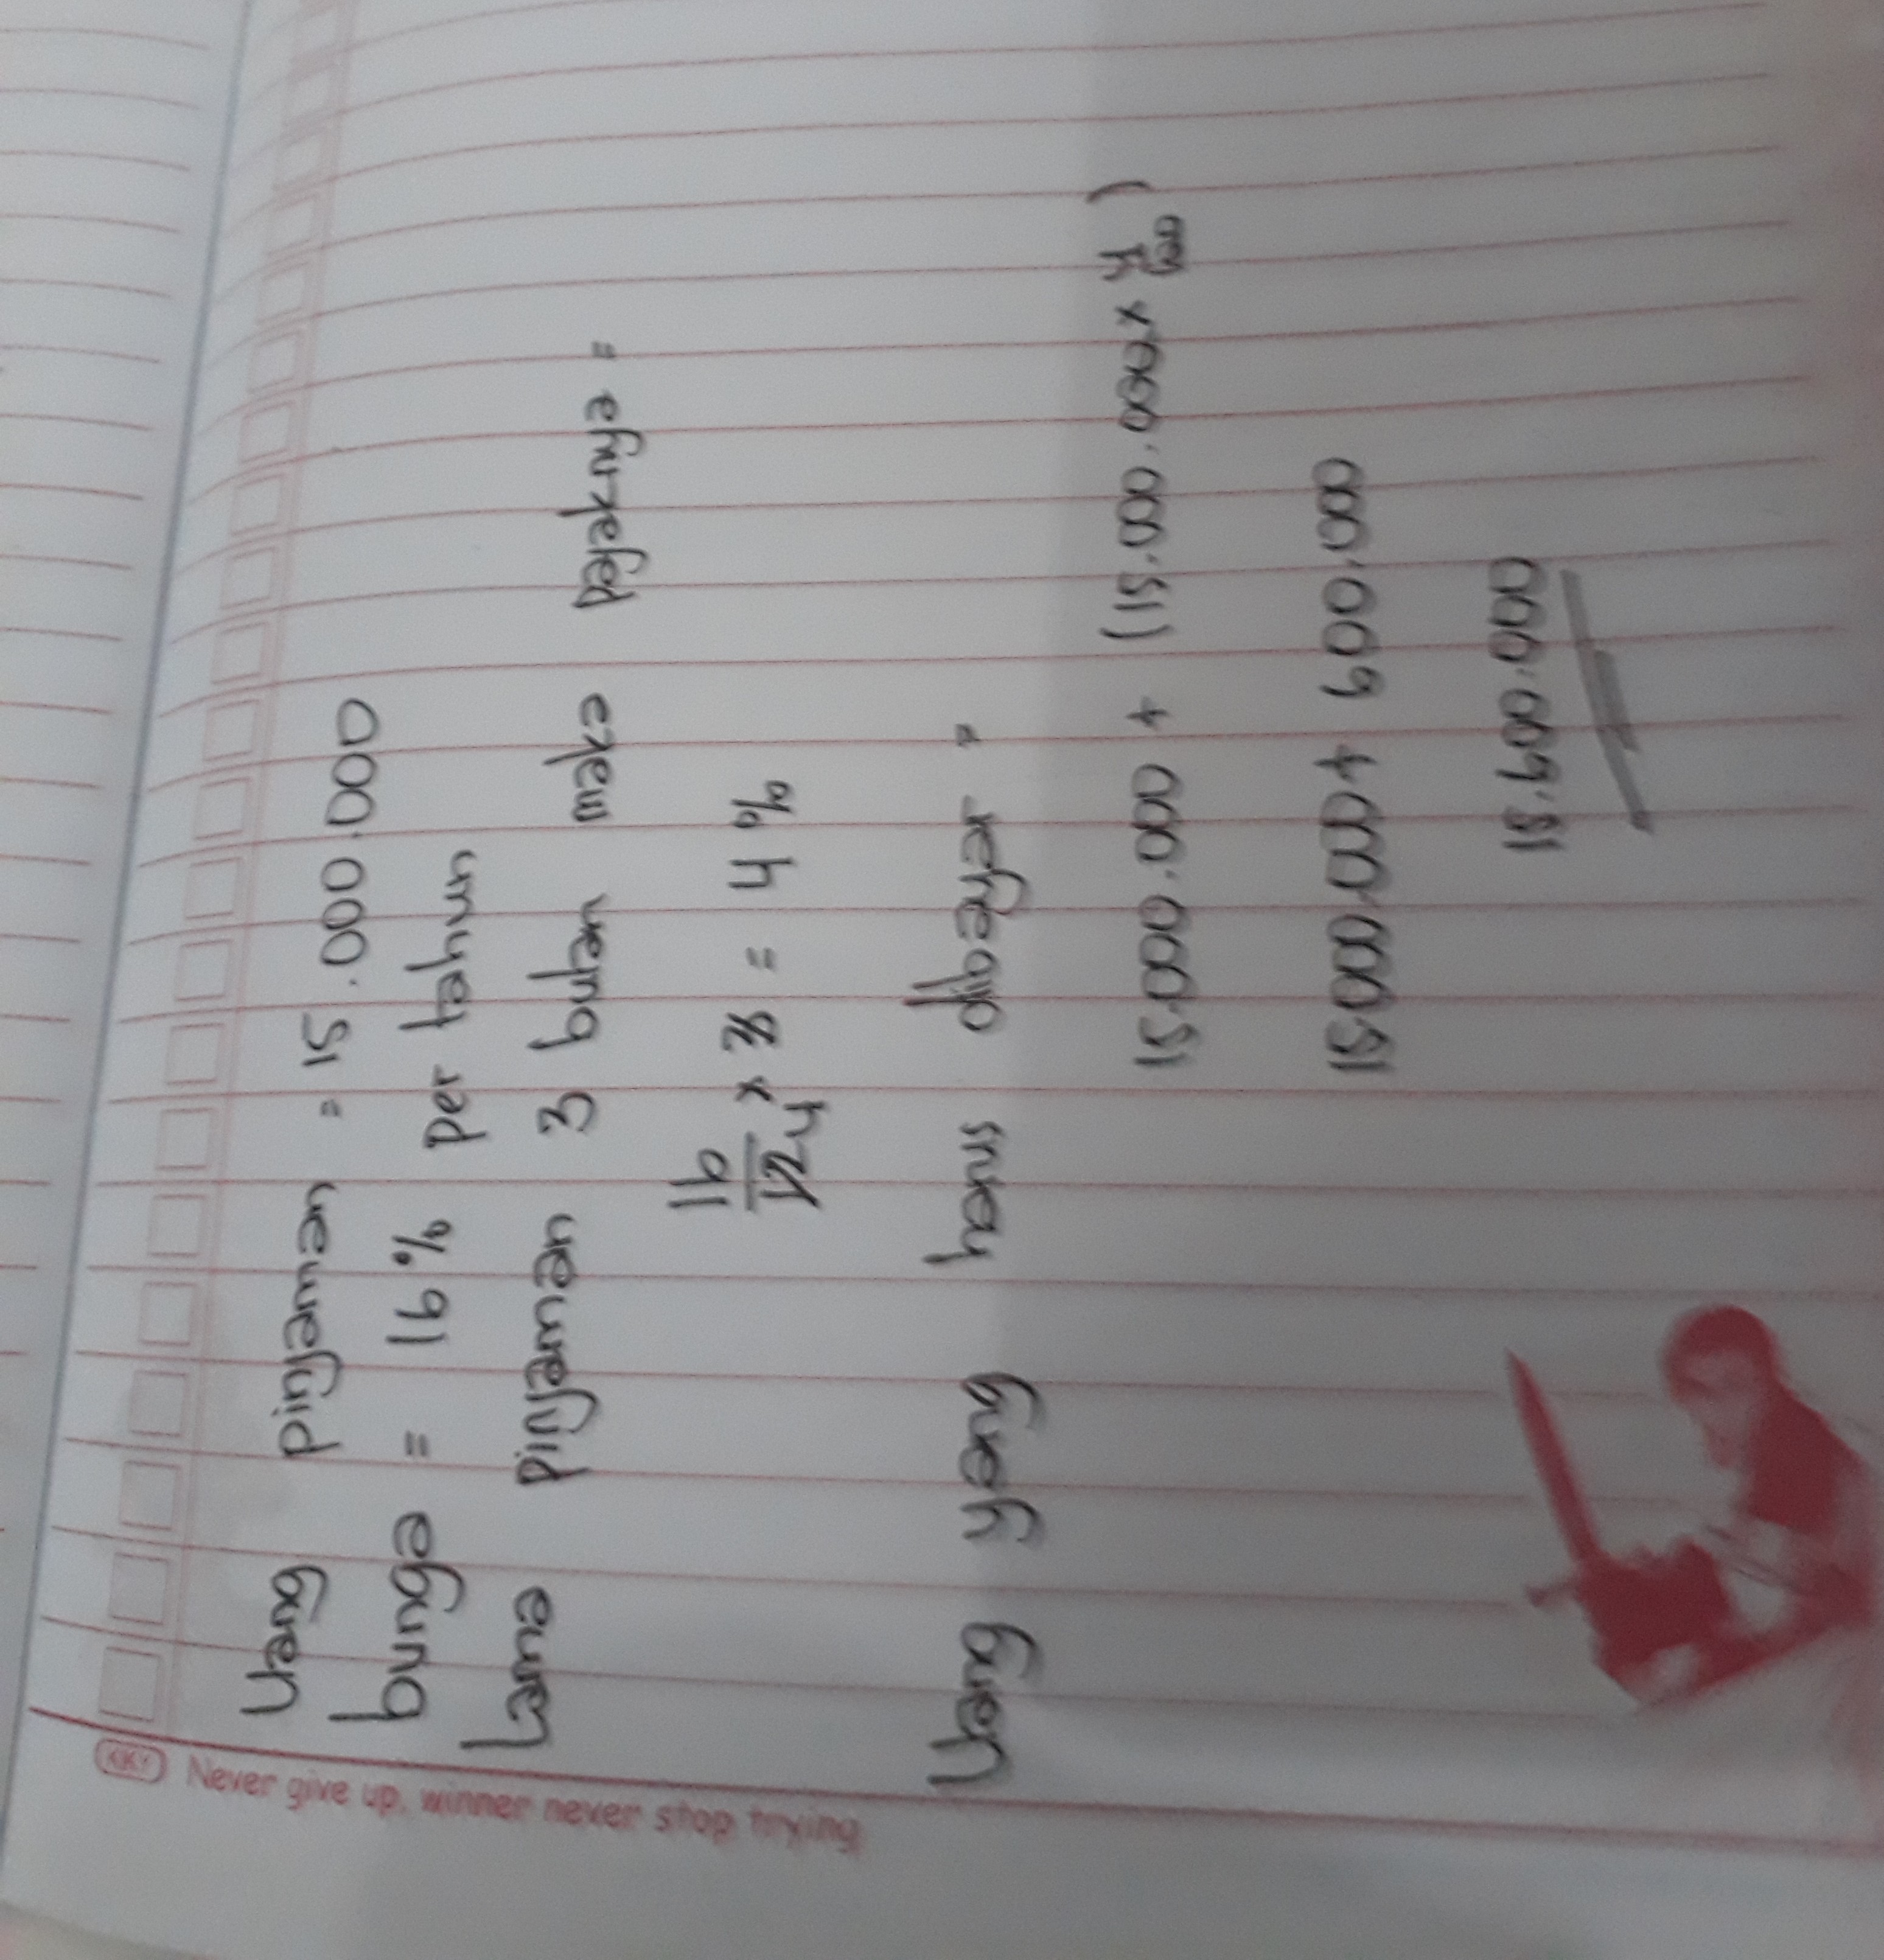 Uang pinjaman = 15.000.000
bunga = 16% per tahun
Lama pinjaman 3 bulan maka pajaknya =
16/12 x 3 = 4 %
4
Uang yang harus dibayar =
15.000.000 + (15.000.000 x 4/100)
15.000.000 + 600.000
15.600.000
KIKY Never give up, winner never stop trying